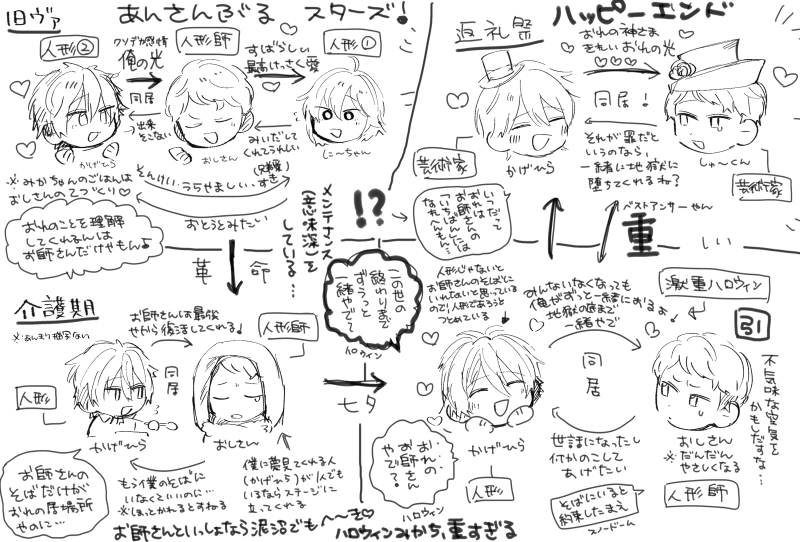 旧ヴァ
あんさんぶる スターズ!
人形②
クソデカ感情
俺の光
人形師
すばらしい
最高けっさく愛
人形①
同居
出来
そこない
みいだして
くれてうれしい
(兄離)
すき
かげひら
おしさん
に〜ちゃん
そんけい、うらやましい、すき
※みかちゃんのごはんは
おしさんのてづくり♡
おとうとみたい
おれのことを理解
してくれるんは
お師さんだけやもん♪
メンテナンス
(意味深)を
している…
革命
返礼祭
ハッピーエンド
おれの神さま
きれい おれの光
同居!
それが罪だと
いうのなら、
一緒に地獄に
堕ちてくれるね?
芸術家
かげひら
しゅ〜くん
芸術家
ベストアンサーやん
!?
おいっだって
お師さんの
おれはんたは
ないちばんも
れへんもん
重
しい
介護期
※あんまり描写ない
お師さんは最後
やから復活してくれる♪
人形師
同居
人形
かげひら
おしさん
もう僕のそばに
いなくといいのに…
※はっとかれるとすねる
僕に夢見てくれる人
(かげひら)が1人でも
いるならステージに
立ってくれる
お師さんの
そばだけが
おれの居場所
やのに…
お師さんといっしょなら泥沼でも〜〜き♡
この世の
終わりまで
ずうっと
一緒やで?
ハロウィン
七夕
人形じゃないと
お師さんのそばに
いれないと思っている
ので人形であろうと
つとめている
みんないなくなっても
俺がずっと一緒におるぉ♪
地獄の底まで
一緒やで
激重ハロウィン
引
同居
不気味な空気を
かもしだすな…
かげひら
人形
世話になったし
何かのこして
あげたい
おしさん
※だんだん
やさしくなる
人形師
そばにいると
約束したまえ
スノードーム
おれの・
お師さん
やで?
ハロウィン
ハロウィンみかち、重すぎる